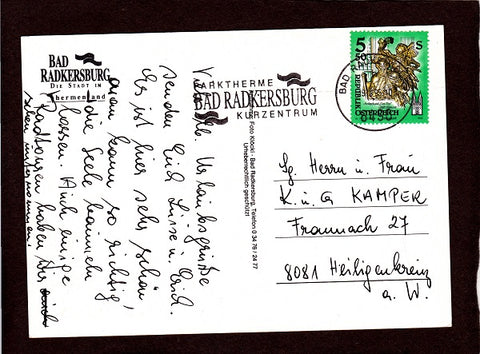 BAD
RADKERSBURG
DIE STADT IM
Thermenland
PARKTHERME
BAD RADKERSBURG
KURZENTRUM
5
S
REPUBLIK
ÖSTERREICH
BAD
8490
Foto Köck - Bad Radkersburg, Telefon 0 34 76 / 24 77
Urheberrechtlich geschützt
Viele liebe Urlaubsgrüße
senden Euch Luise u. Erich.
Es ist hier sehr schön,
man kann so richtig
die Seele baumeln
lassen. Auch einige
Radtouren haben wir
schon unternommen.
Sg. Herrn u. Frau
K. u. G KAMPER
Fraunnach 27
8081 Heiligenkreuz
a. W.